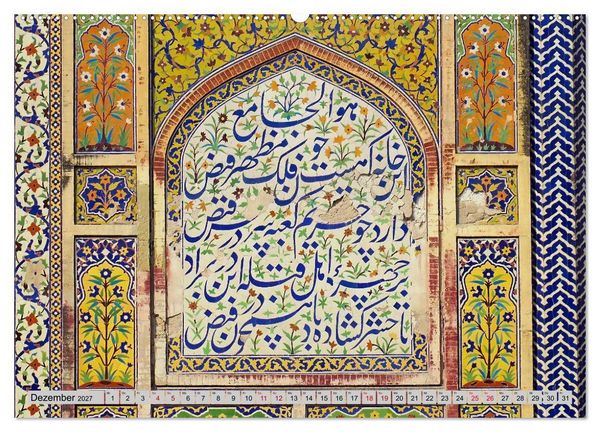 هو الجامع
این خانه که هست چون فلک مظهر فیض
دارد چو حریم کعبه در فیض
بر چهره اهل قبله این در مراد
تا حشر گشاده باد فیض
Dezember 2027 1 2 3 4 5 6 7 8 9 10 11 12 13 14 15 16 17 18 19 20 21 22 23 24 25 26 27 28 29 30 31